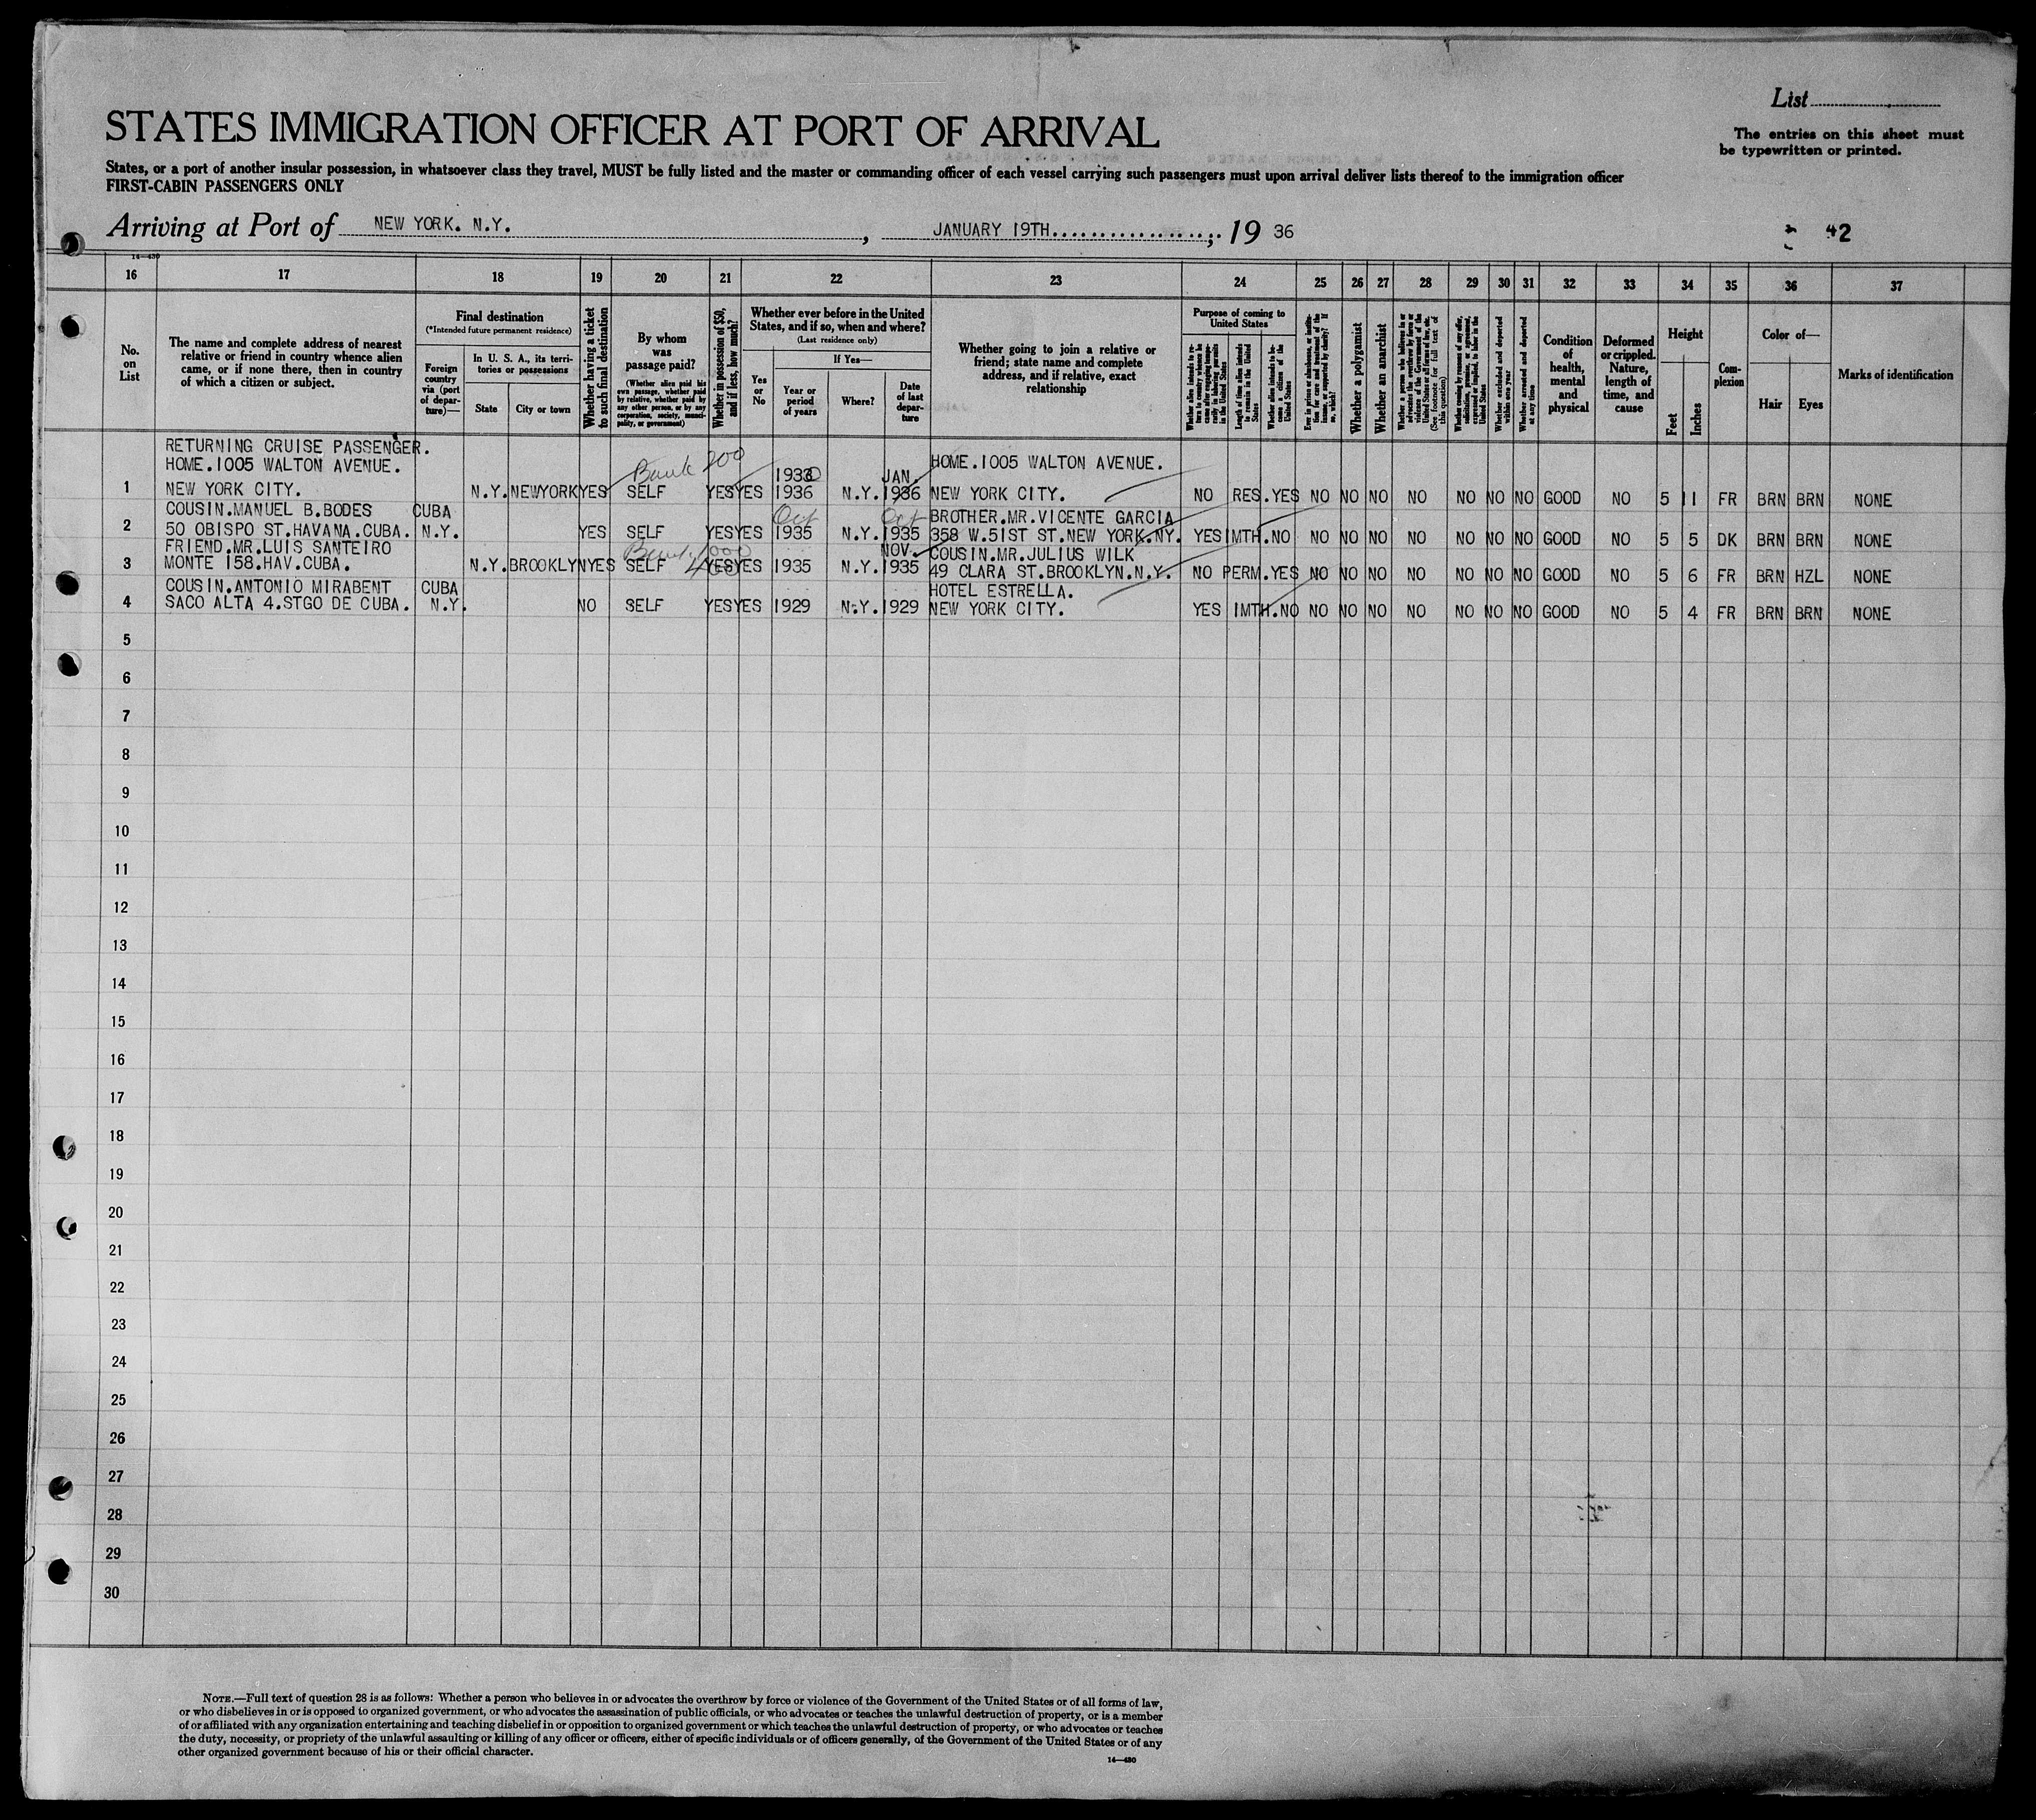 List
STATES IMMIGRATION OFFICER AT PORT OF ARRIVAL
The entries on this sheet must
be typewritten or printed.
States, or a port of another insular possession, in whatsoever class they travel, MUST be fully listed and the master or commanding officer of each vessel carrying such passengers must upon arrival deliver lists thereof to the immigration officer
FIRST-CABIN PASSENGERS ONLY
Arriving at Port of NEW YORK. N.Y. , JANUARY 19TH. , 19 36
42
14—430
16 17 18 19 20 21 22 23 24 25 26 27 28 29 30 31 32 33 34 35 36 37
No. on List
The name and complete address of nearest relative or friend in country whence alien came, or if none there, then in country of which a citizen or subject.
Final destination
(*Intended future permanent residence)
Foreign country via (port of departure)—
In U. S. A., its territories or possessions
State
City or town
Whether having a ticket to such final destination
By whom was passage paid?
(Whether alien paid his own passage, whether paid by relative, whether paid by any other person, or by any corporation, society, municipality, or government)
Whether in possession of $50, and if less, how much?
Whether ever before in the United States, and if so, when and where?
(Last residence only)
If Yes—
Yes or No
Year or period of years
Where?
Date of last departure
Whether going to join a relative or friend; state name and complete address, and if relative, exact relationship
Purpose of coming to United States
Length of time alien intends to remain in the United States
Whether alien intends to become a citizen of the United States
Whether a polygamist
Whether an anarchist
(See footnote for full text of this question)
Whether arrested and deported at any time
Condition of health, mental and physical
Deformed or crippled. Nature, length of time, and cause
Height
Feet
Inches
Complexion
Color of—
Hair
Eyes
Marks of identification
RETURNING CRUISE PASSENGER.
HOME.1005 WALTON AVENUE. Bank 200 1933 JAN. HOME.1005 WALTON AVENUE.
1 NEW YORK CITY. N.Y. NEWYORK YES SELF YES YES 1936 N.Y. 1936 NEW YORK CITY. NO RES. YES NO NO NO NO NO NO NO GOOD NO 5 11 FR BRN BRN NONE
COUSIN.MANUEL B.BODES CUBA Oct Oct BROTHER.MR.VICENTE GARCIA
2 50 OBISPO ST.HAVANA.CUBA. N.Y. YES SELF YES YES 1935 N.Y. 1935 358 W.51ST ST.NEW YORK.NY. YES 1MTH. NO NO NO NO NO NO NO NO GOOD NO 5 5 DK BRN BRN NONE
FRIEND.MR.LUIS SANTEIRO 1000 NOV. COUSIN.MR.JULIUS WILK
3 MONTE 158.HAV.CUBA. N.Y. BROOKLYN YES SELF 400 YES YES 1935 N.Y. 1935 49 CLARA ST.BROOKLYN.N.Y. NO PERM. YES NO NO NO NO NO NO NO GOOD NO 5 6 FR BRN HZL NONE
COUSIN.ANTONIO MIRABENT CUBA HOTEL ESTRELLA.
4 SACO ALTA 4.STGO DE CUBA. N.Y. NO SELF YES YES 1929 N.Y. 1929 NEW YORK CITY. YES 1MTH. NO NO NO NO NO NO NO NO GOOD NO 5 4 FR BRN BRN NONE
5
6
7
8
9
10
11
12
13
14
15
16
17
18
19
20
21
22
23
24
25
26
27
28
29
30
NOTE.—Full text of question 28 is as follows: Whether a person who believes in or advocates the overthrow by force or violence of the Government of the United States or of all forms of law,
or who disbelieves in or is opposed to organized government, or who advocates the assassination of public officials, or who advocates or teaches the unlawful destruction of property, or is a member
of or affiliated with any organization entertaining and teaching disbelief in or opposition to organized government or which teaches the unlawful destruction of property, or who advocates or teaches
the duty, necessity, or propriety of the unlawful assaulting or killing of any officer or officers, either of specific individuals or of officers generally, of the Government of the United States or of any
other organized government because of his or their official character.
14—430